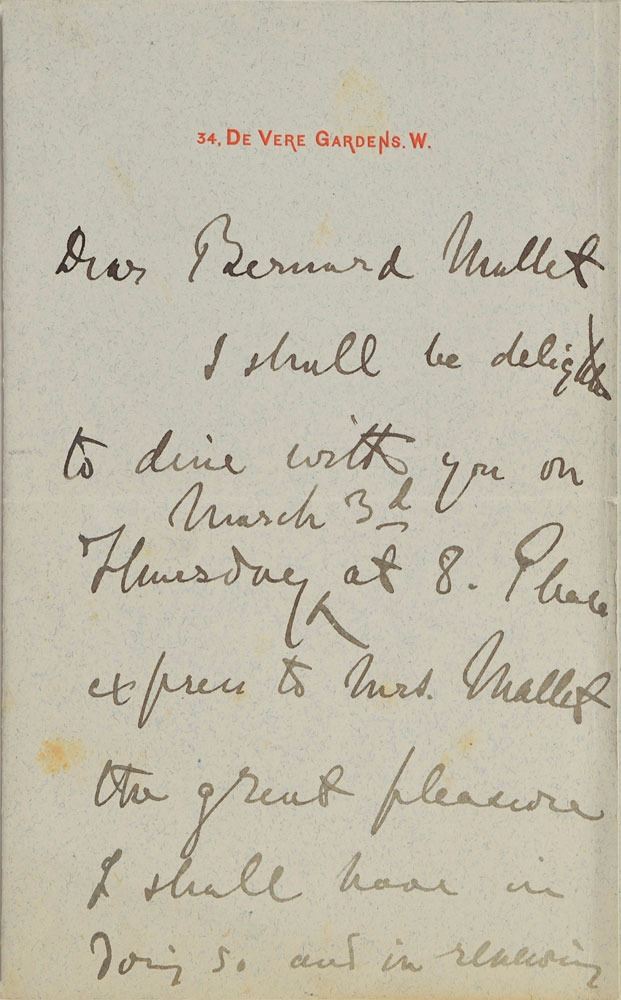 34, De Vere Gardens. W.
Dear Bernard Mallet
I shall be delighted
to dine with you on
March 3d
Thursday at 8. Please
express to Mrs. Mallet
the great pleasure
I shall have in
doing so and in renewing